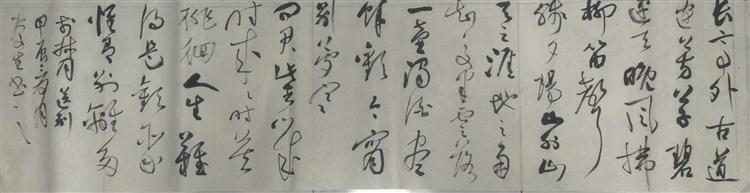 长亭外古道
边芳草碧
连天晚风拂
柳笛声
残夕阳山外山
天之涯地之角
知交半零落
一壶浊酒尽
余欢今宵
别梦寒
问君此去几时
来来时莫
徘徊人生难
得是欢聚
惟有别离多
李叔同送别
甲辰